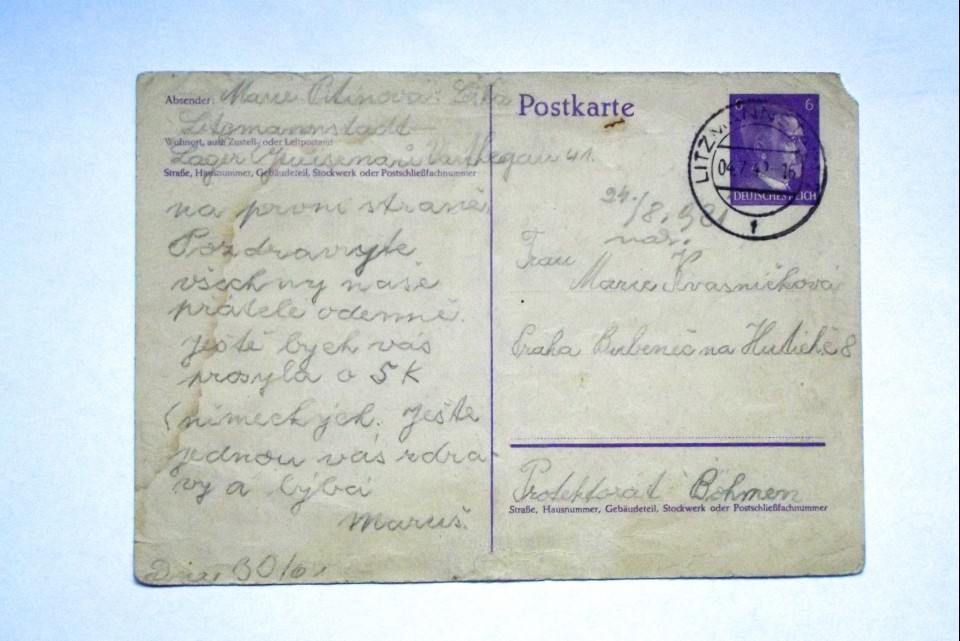 Absender: Marie
Litzmannstadt
Wohnort, auch Zustell- oder Leitpostamt
Lager
Straße, Hausnummer, Gebäudeteil, Stockwerk oder Postschließfachnummer
na první straně
Pozdravujte
všechny naše
přátelé odemně.
Ještě bych vás
prosyla o 5 K
německých. Ještě
jednou vás zdra-
vy a lýbá
Maruš.
30/6
Postkarte
6 6
DEUTSCHES REICH
LITZMANNSTADT
1
24/8.
nar.
Frau
Marie Kvasničková
Praha Bubeneč na Hutích 8
Protektorat Böhmen
Straße, Hausnummer, Gebäudeteil, Stockwerk oder Postschließfachnummer